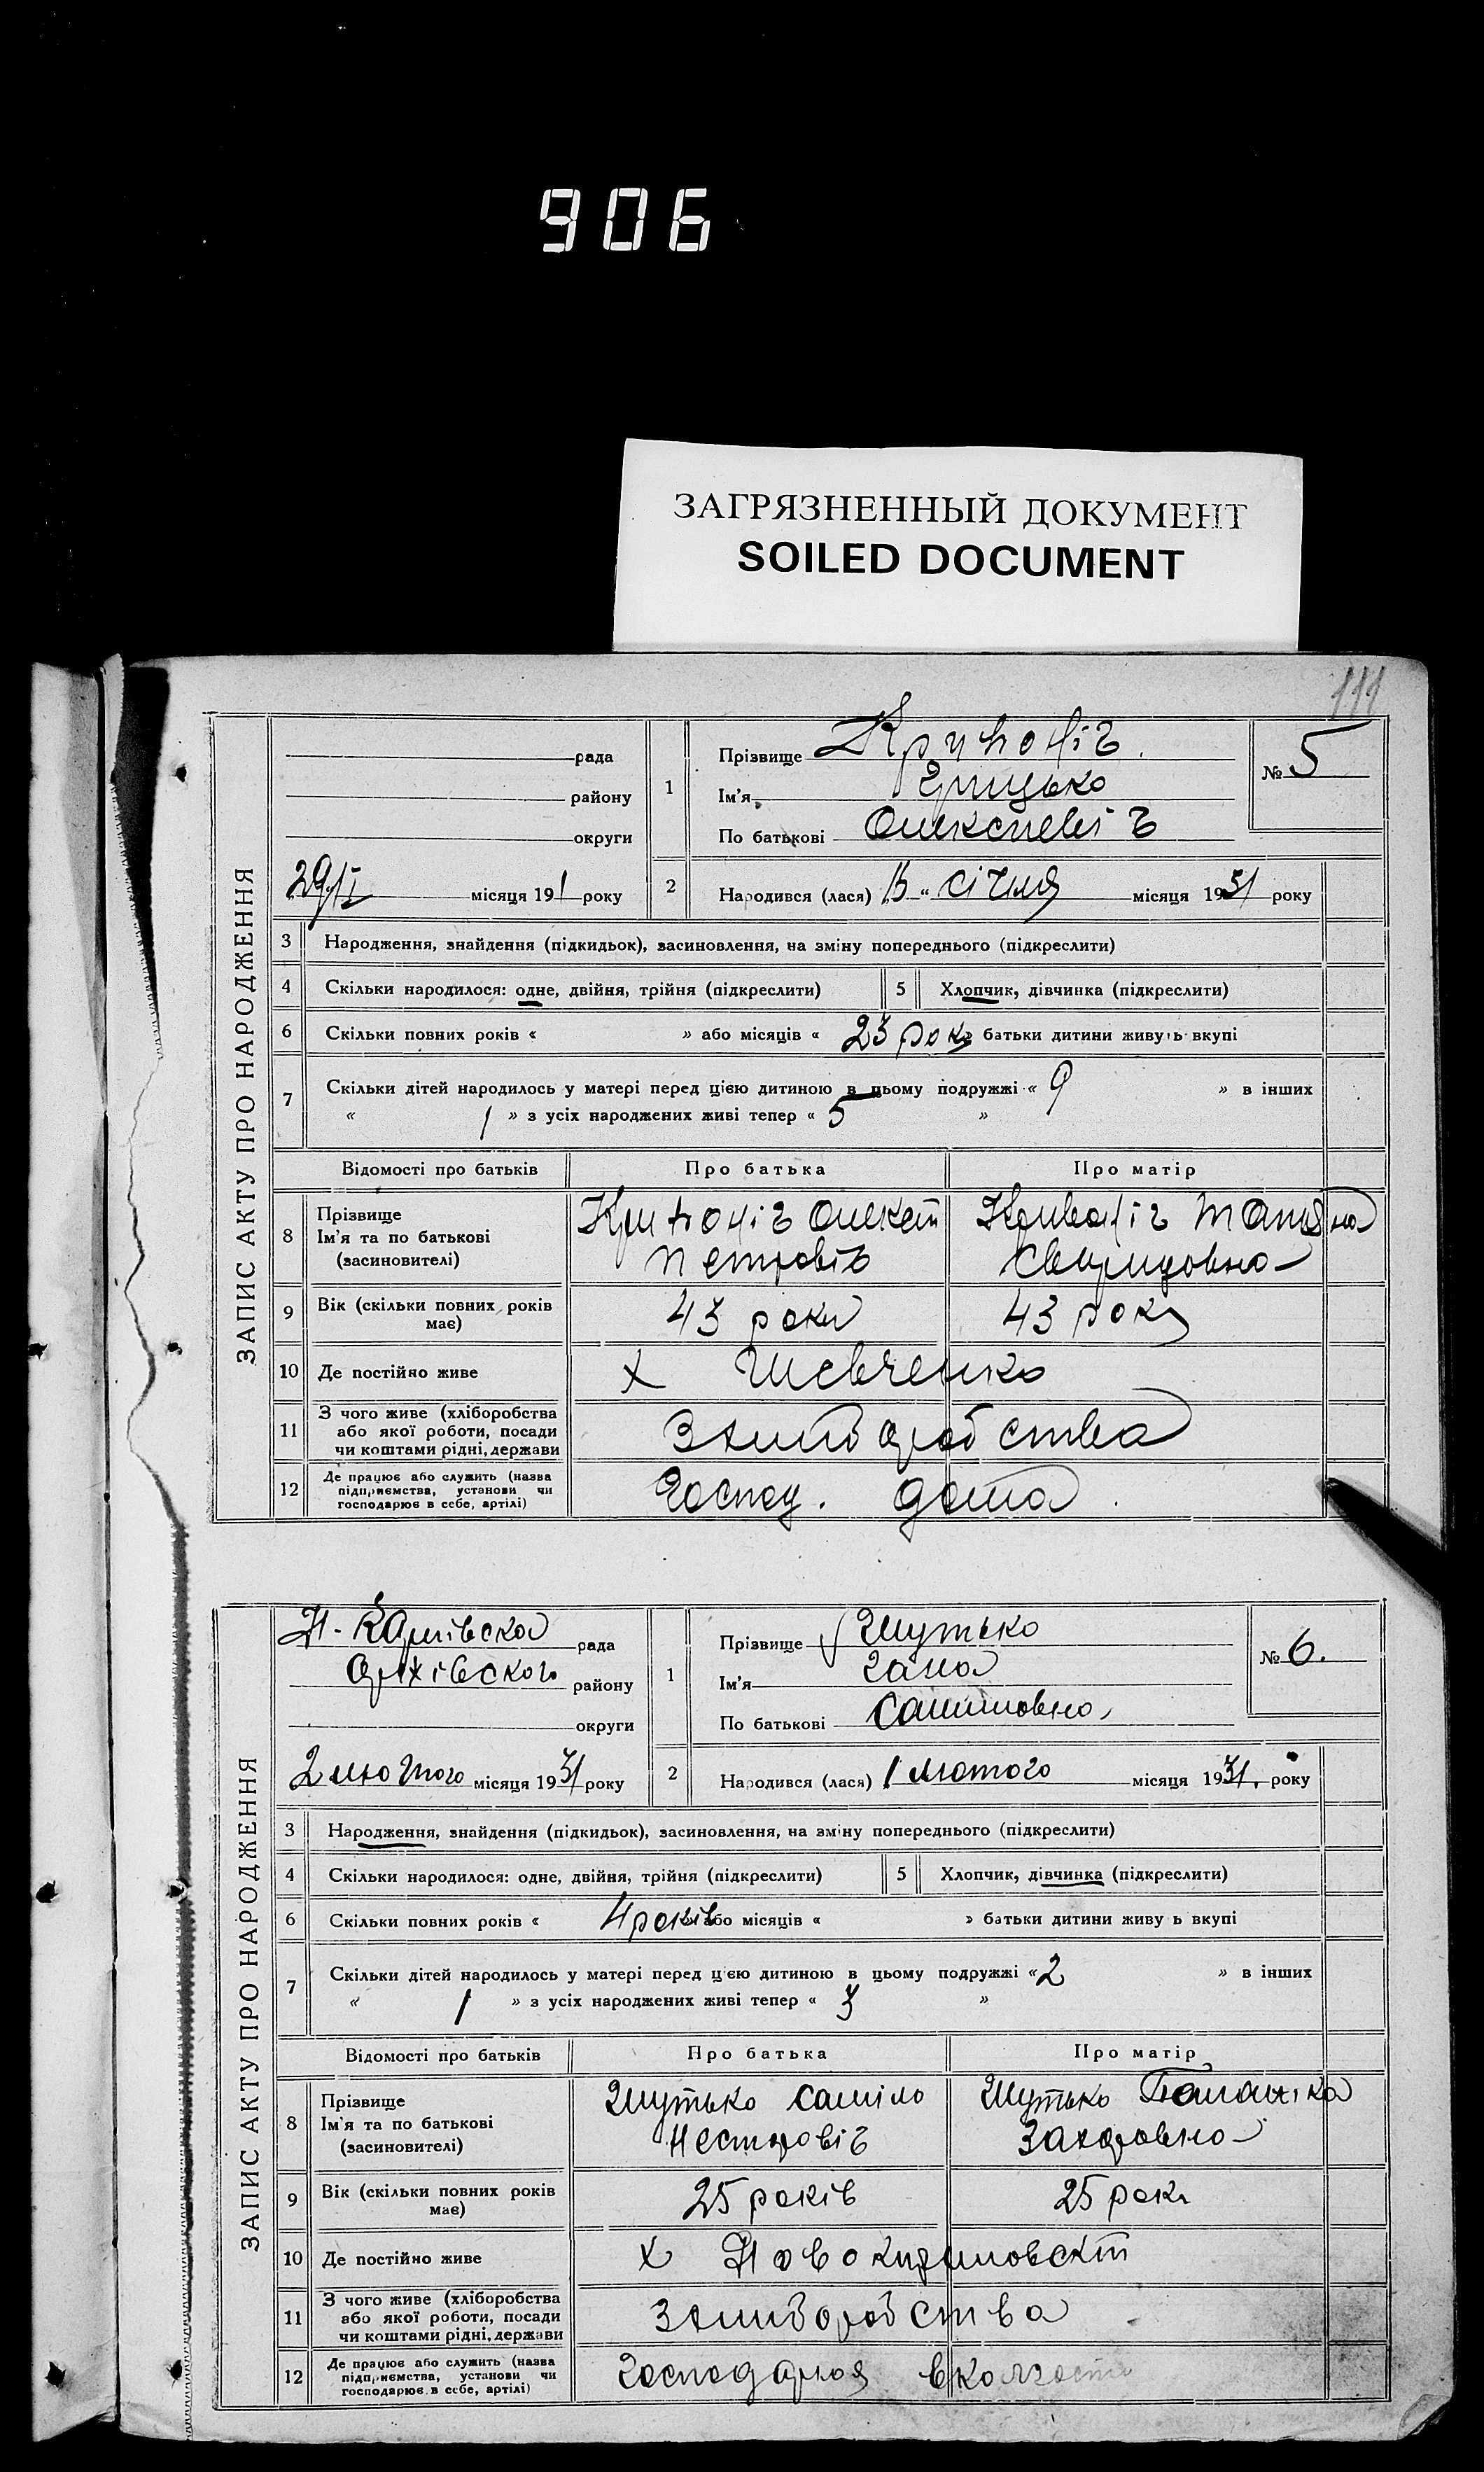 906
ЗАГРЯЗНЕННЫЙ ДОКУМЕНТ
SOILED DOCUMENT
111
ЗАПИС АКТУ ПРО НАРОДЖЕННЯ
рада
району
округи
29/I місяця 191 року
1 Прізвище Кривоніг.
Ім'я Грицько
По батькові
№ 5
2 Народився (лася) січня місяця 1931 року
3 Народження, знайдення (підкидьок), засиновлення, на зміну попереднього (підкреслити)
4 Скільки народилося: одне, двійня, трійня (підкреслити) 5 Хлопчик, дівчинка (підкреслити)
6 Скільки повних років « » або місяців « 23 рок батьки дитини живуь вкупі
7 Скільки дітей народилось у матері перед цією дитиною в цьому подружжі « 9 » в інших
« 1 » з усіх народжених живі тепер « 5 »
Відомості про батьків Про батька Про матір
8 Прізвище
Ім'я та по батькові
(засновителі)
Кривоніг
Петровіч
Кривоніг Татяна
Свиридовна
9 Вік (скільки повних років має) 43 роки 43 року
10 Де постійно живе х Шевченко
11 З чого живе (хліборобства
або якої роботи, посади
чи коштами рідні, держави
хлиборобства
12 Де працює або служить (назва
підприємства, установи чи
господарює в себе, артілі)
Господ. дома
ЗАПИС АКТУ ПРО НАРОДЖЕННЯ
Н-Карлівска рада
оріхівского району
округи
2 лютого місяця 1931 року
1 Прізвище Шутько
Ім'я Гана
По батькові Самиловна
№ 6.
2 Народився (лася) 1 лютого місяця 1931. року
3 Народження, знайдення (підкидьок), засиновлення, на зміну попереднього (підкреслити)
4 Скільки народилося: одне, двійня, трійня (підкреслити) 5 Хлопчик, дівчинка (підкреслити)
6 Скільки повних років « 4 років або місяців « » батьки дитини живу ь вкупі
7 Скільки дітей народилось у матері перед цією дитиною в цьому подружжі « 2 » в інших
« 1 » з усіх народжених живі тепер « 3 »
Відомості про батьків Про батька Про матір
8 Прізвище
Ім'я та по батькові
(засиновителі)
Шутько Саміло
Несторовіч
Шутько Палажка
Захаровна
9 Вік (скільки повних років має) 25 років 25 рок
10 Де постійно живе х
11 З чого живе (хліборобства
або якої роботи, посади
чи коштами рідні, держави
хлиборобства
12 Де працює або служить (назва
підприємства, установи чи
господарює в себе, артілі)